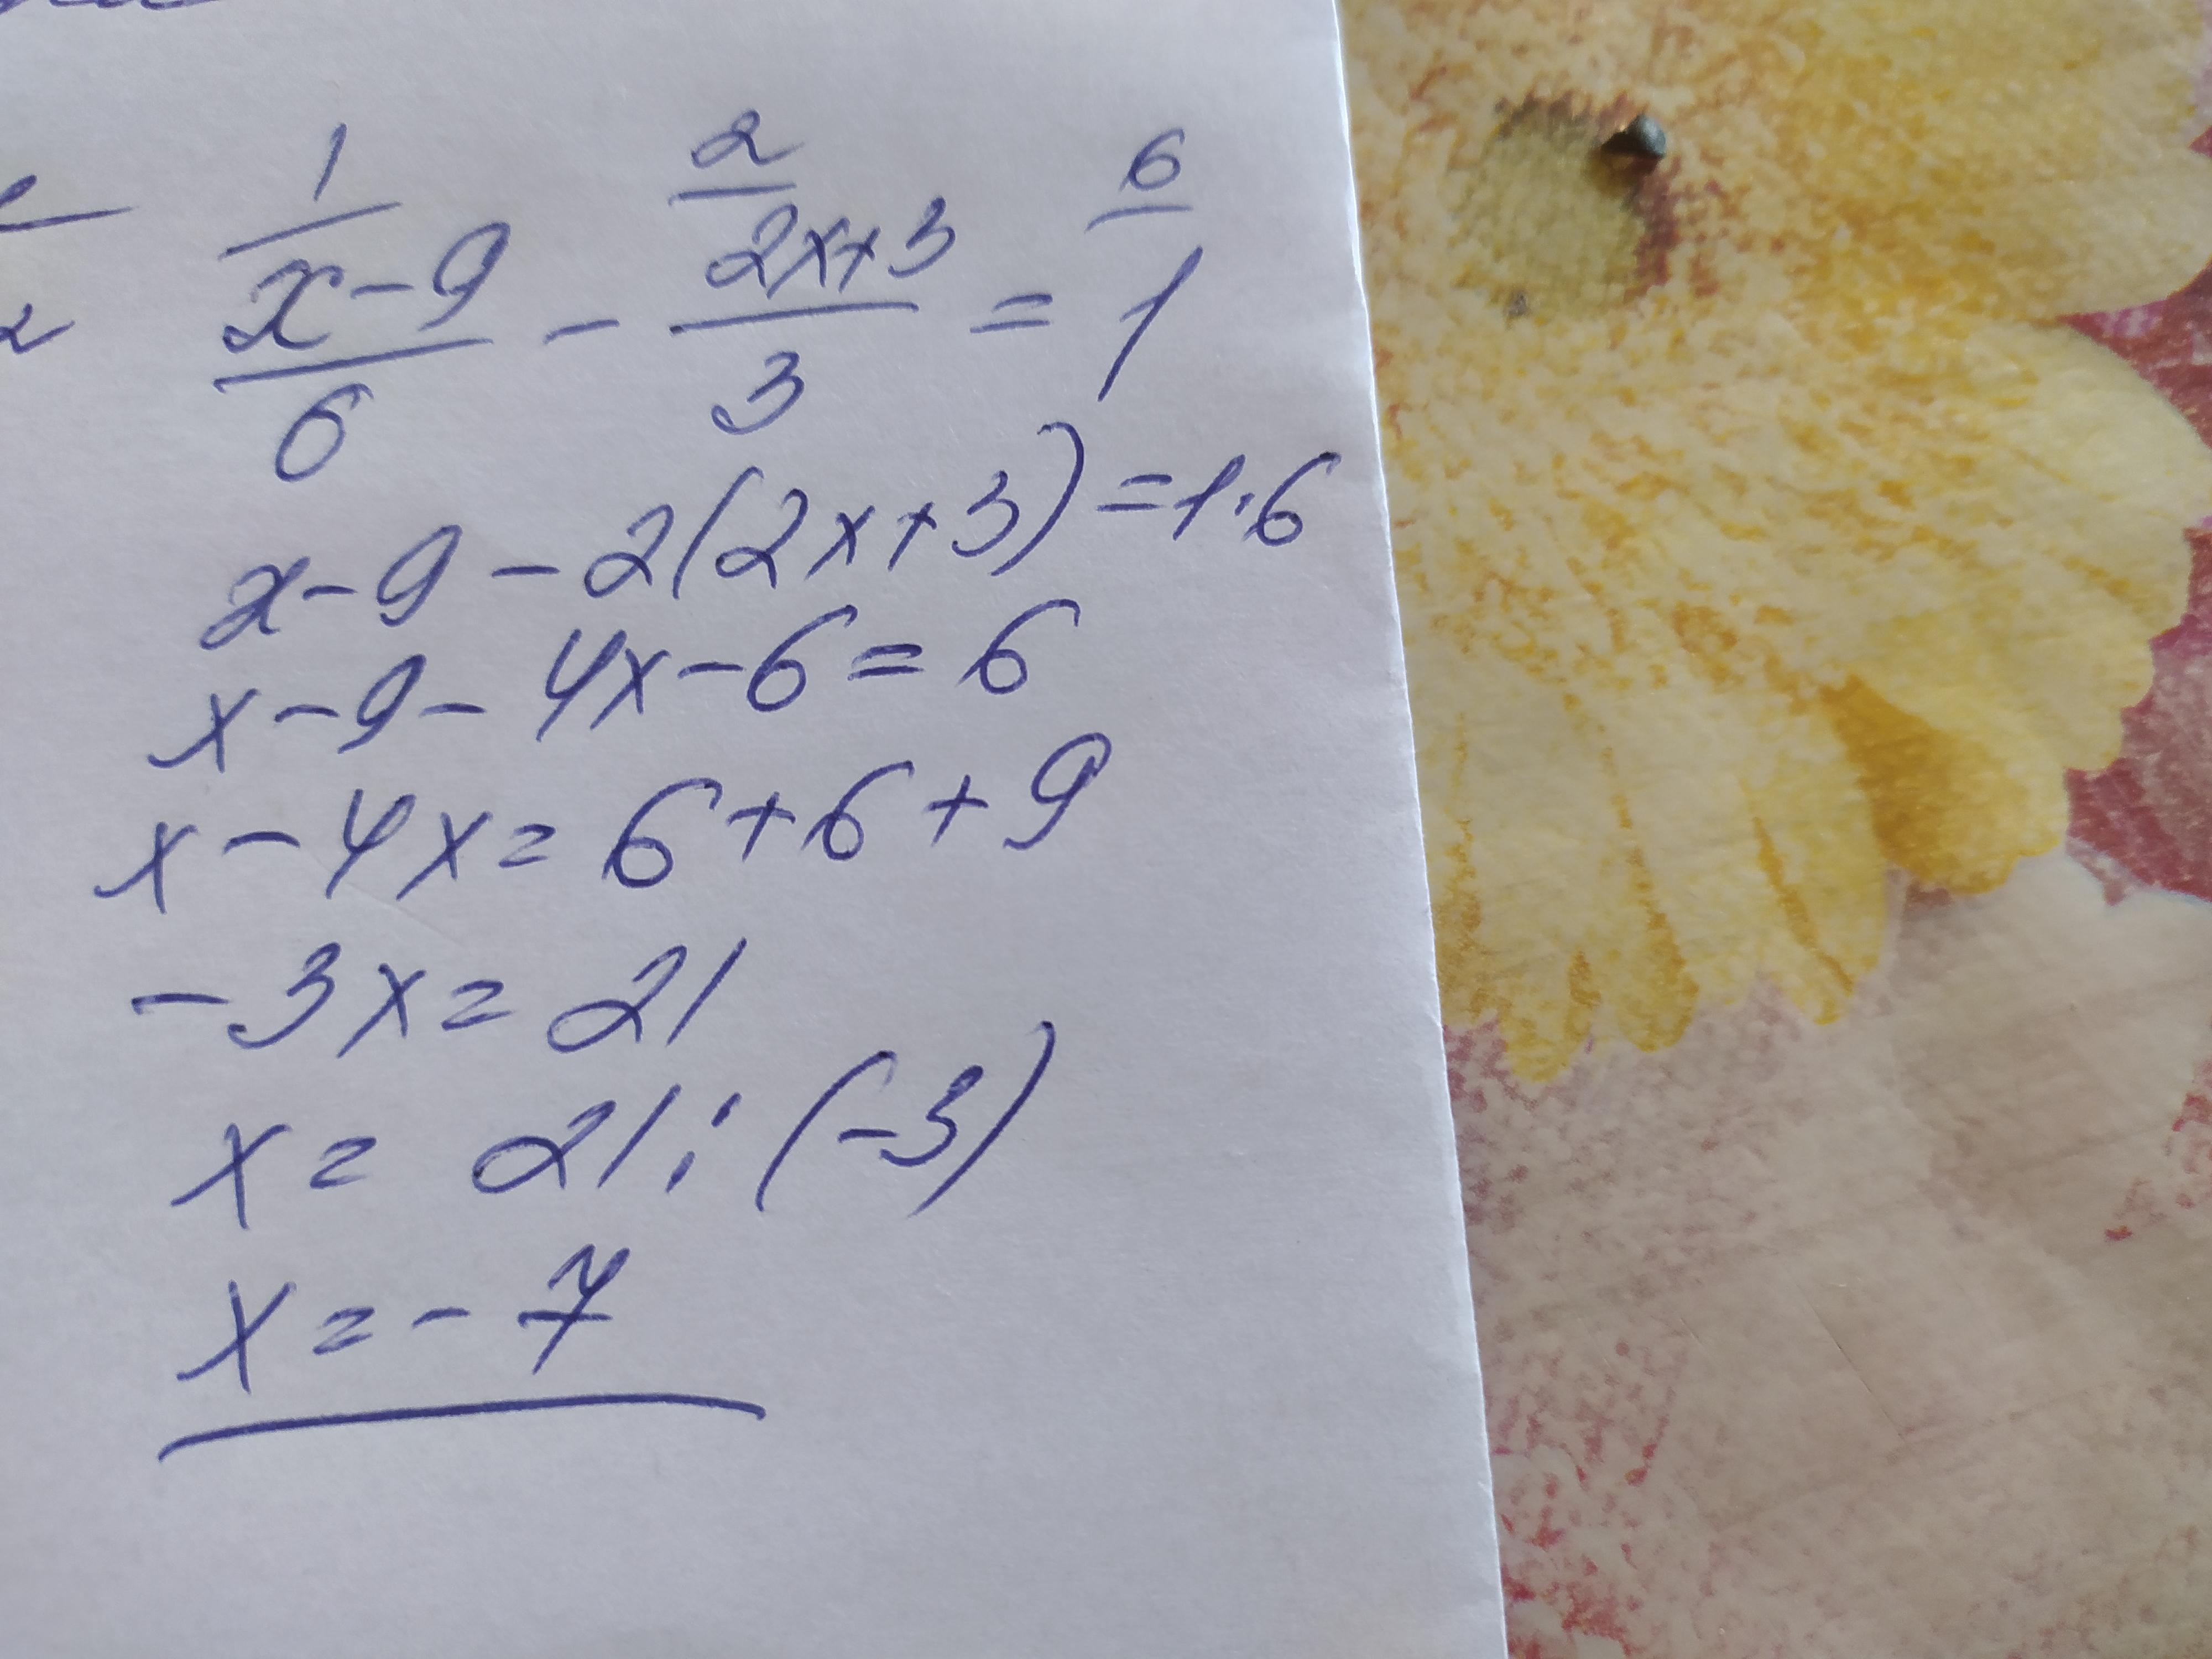 1 2 6
x-9 / 6 - 2x+3 / 3 = 1
x-9-2(2x+3)=1·6
x-9-4x-6=6
x-4x=6+6+9
-3x=21
x=21:(-3)
x=-7